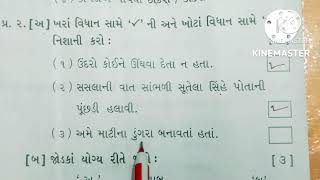 પ્ર. ૨. [અ] ખરાં વિધાન સામે '✓' ની અને ખોટાં વિધાન સામે '
નિશાની કરો :
(૧) ઉંદરો કોઈને ઊંઘવા દેતા ન હતા.
(૨) સસલાની વાત સાંભળી સૂતેલા સિંહે પોતાની
પૂંછડી હલાવી.
(૩) અમે માટીના ડુંગરા બનાવતાં હતાં.
[બ] જોડકાં યોગ્ય રીતે [૩]
KINEMASTER
KINEMASTER